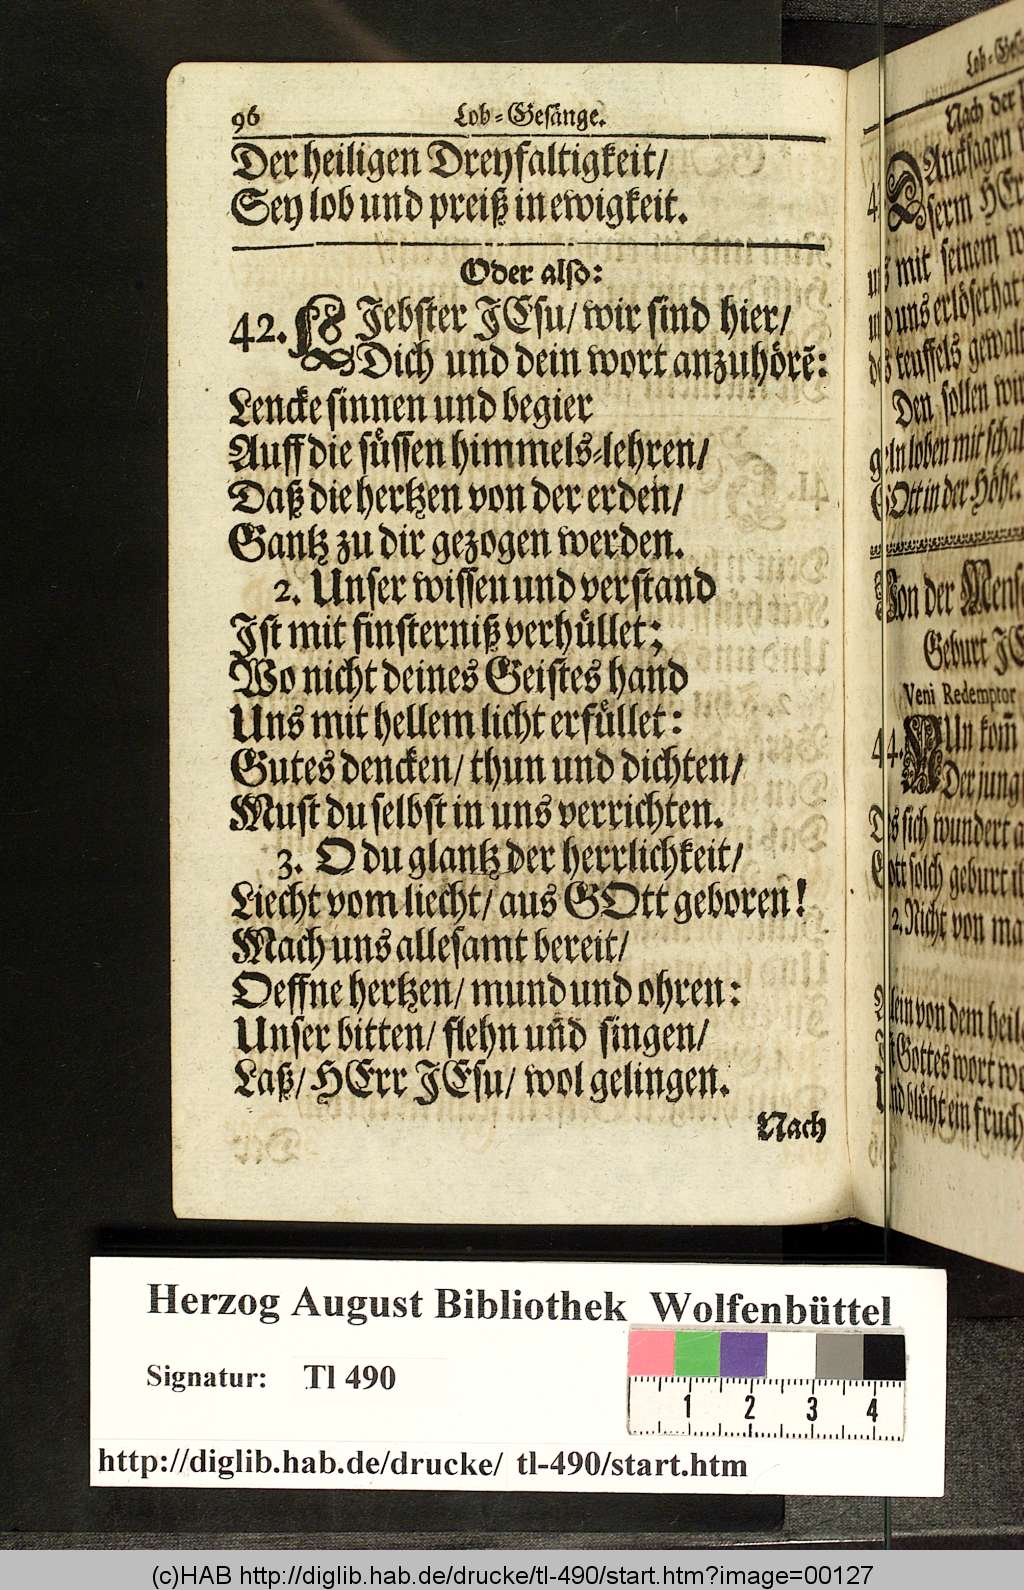 96 Lob-Gesänge.
Der heiligen Dreyfaltigkeit/
Sey lob und preiß in ewigkeit.
Oder also:
42. LJebster JEsu/ wir sind hier/
Dich und dein wort anzuhörẽ:
Lencke sinnen und begier
Auff die süssen himmels-lehren/
Daß die hertzen von der erden/
Gantz zu dir gezogen werden.
2. Unser wissen und verstand
Jst mit finsterniß verhüllet;
Wo nicht deines Geistes hand
Uns mit hellem licht erfüllet:
Gutes dencken/ thun und dichten/
Must du selbst in uns verrichten.
3. O du glantz der herrlichkeit/
Liecht vom liecht/ aus GOtt geboren!
Mach uns allesamt bereit/
Oeffne hertzen/ mund und ohren:
Unser bitten/ flehn uñd singen/
Laß/ HErr JEsu/ wol gelingen.
Nach
Nach der
DAncksagen
serm HErr
uns mit seinem
und uns erlöset hat
des teuffels gewalt
Den sollen wir
geln loben mit schal
GOtt in der Höhe.
Von der Mensch
Geburt JE
Veni Redemptor
44. NUn kom̃
Der jung
Des sich wundert a
Gott solch geburt i
2. Nicht von ma
Allein von dem heil
Jst Gottes wort wo
Und blüht ein fruch
Herzog August Bibliothek Wolfenbüttel
Signatur: Tl 490
1 2 3 4
http://diglib.hab.de/drucke/ tl-490/start.htm
(c)HAB http://diglib.hab.de/drucke/tl-490/start.htm?image=00127